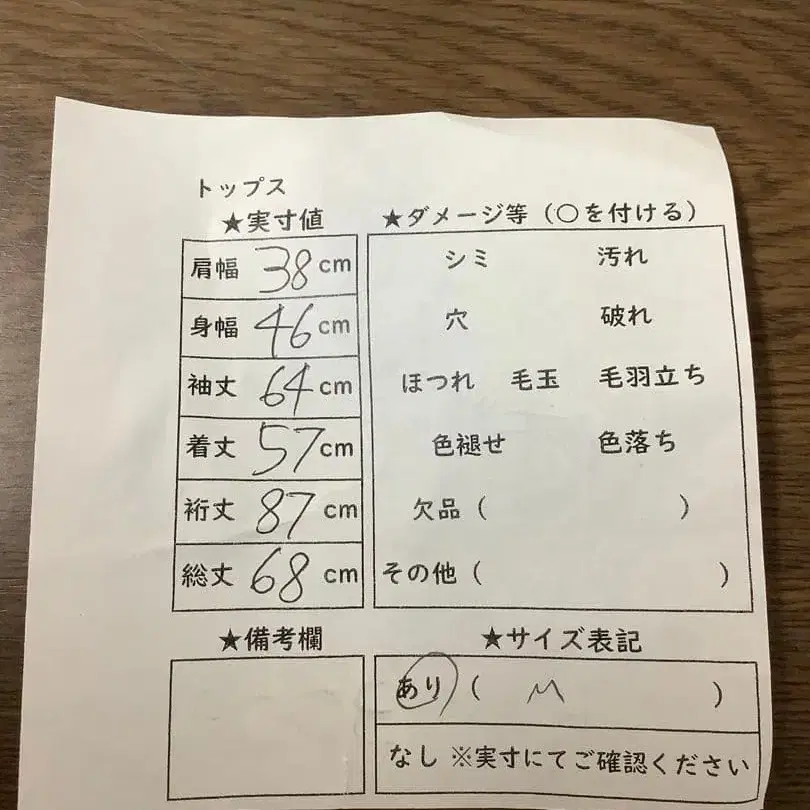 トップス
★実寸値
肩幅 38 cm
身幅 46 cm
袖丈 64 cm
着丈 57 cm
裄丈 87 cm
総丈 68 cm
★ダメージ等（○を付ける）
シミ 汚れ
穴 破れ
ほつれ 毛玉 毛羽立ち
色褪せ 色落ち
欠品（ ）
その他（ ）
★備考欄
★サイズ表記
あり（ M ）
なし ※実寸にてご確認ください